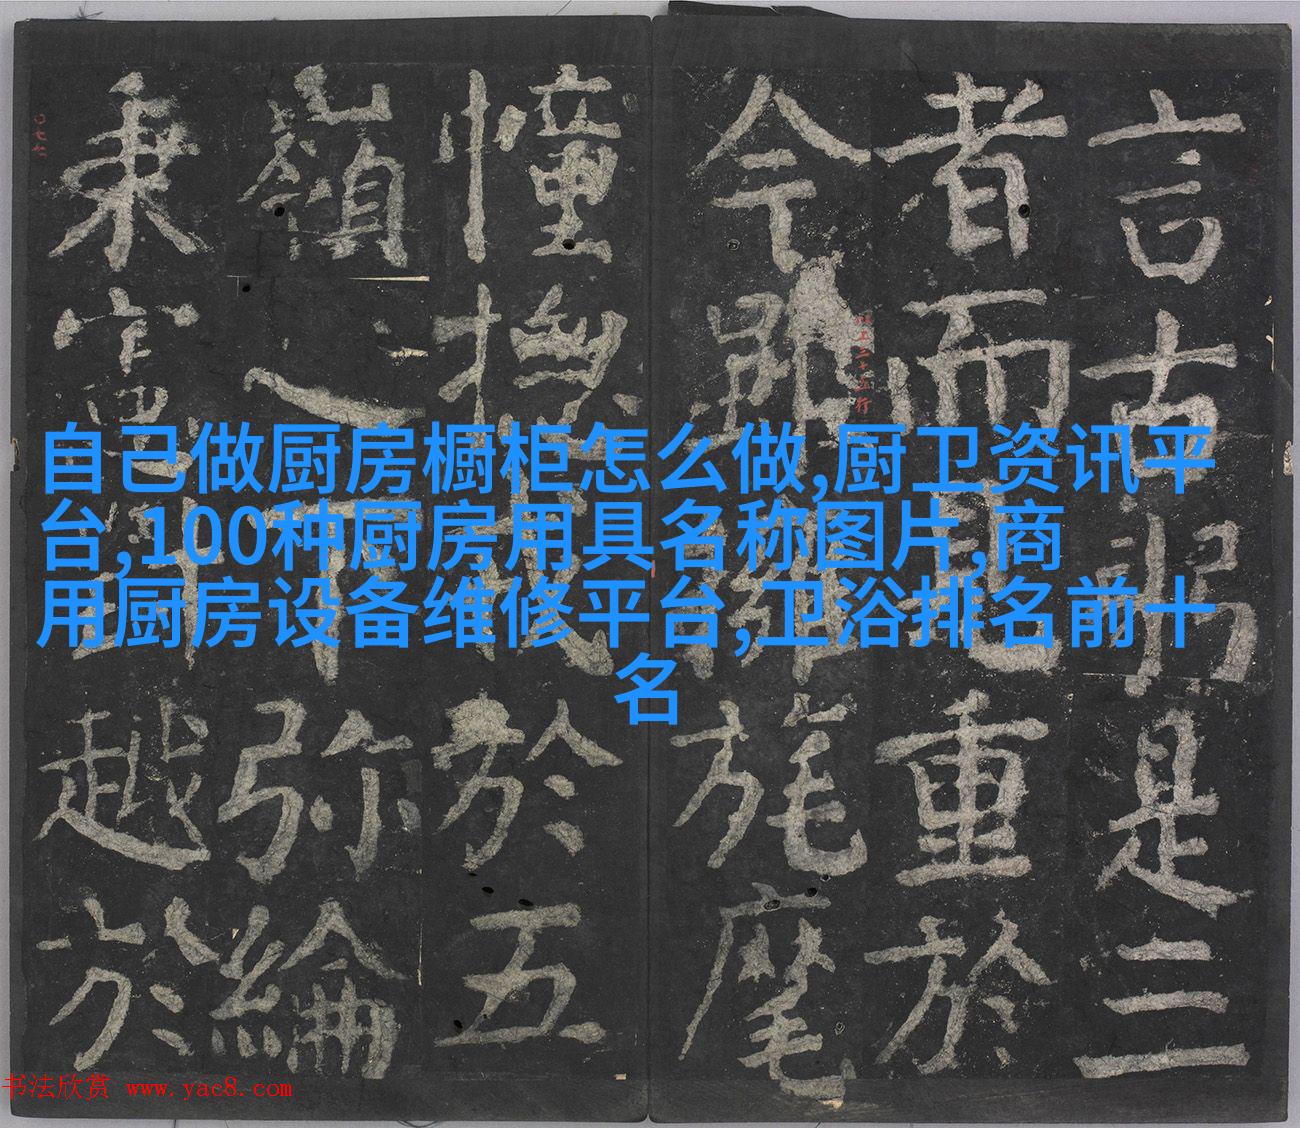 言古 是三
者而 重於
今 旄麾
憧撫 於五
嶺之 弥綸
秉 越於
自己做厨房橱柜怎么做,厨卫资讯平
台,100种厨房用具名称图片,商
用厨房设备维修平台,卫浴排名前十
名
书法欣赏 www.yac8.com